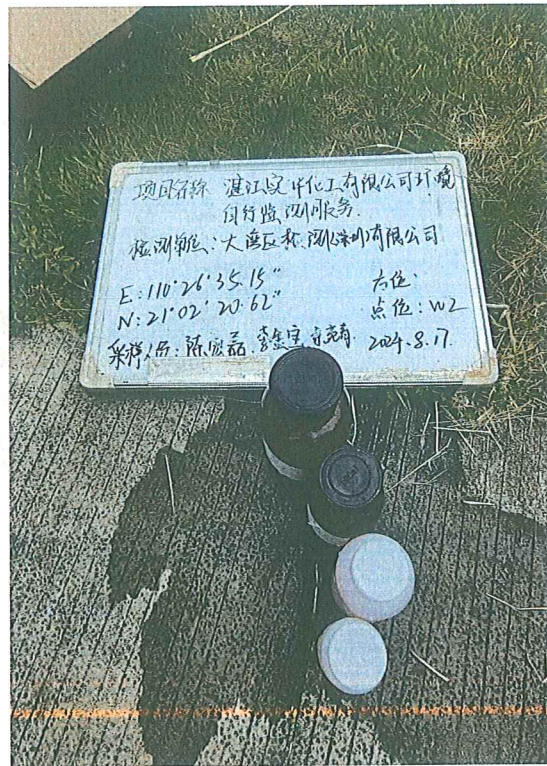 项目名称 湛江实华化工有限公司环境
自行监测服务.
检测单位:大湾区检测(深圳)有限公司
E:110°26'35.15"
方位:
N:21°02'20.62"
点位:W2
采样人员:陈宏磊.
2024.8.17